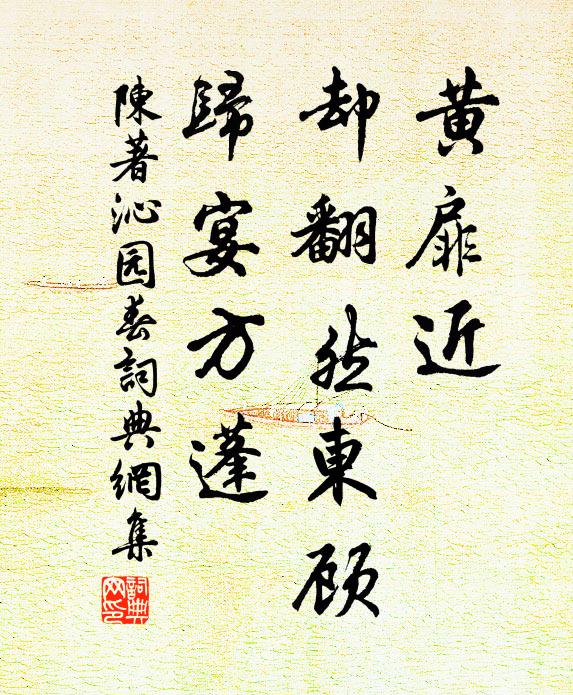 黄扉近
却翻然東顾
歸宴方蓬
陳著沁园春詞典網集
詞典
网印